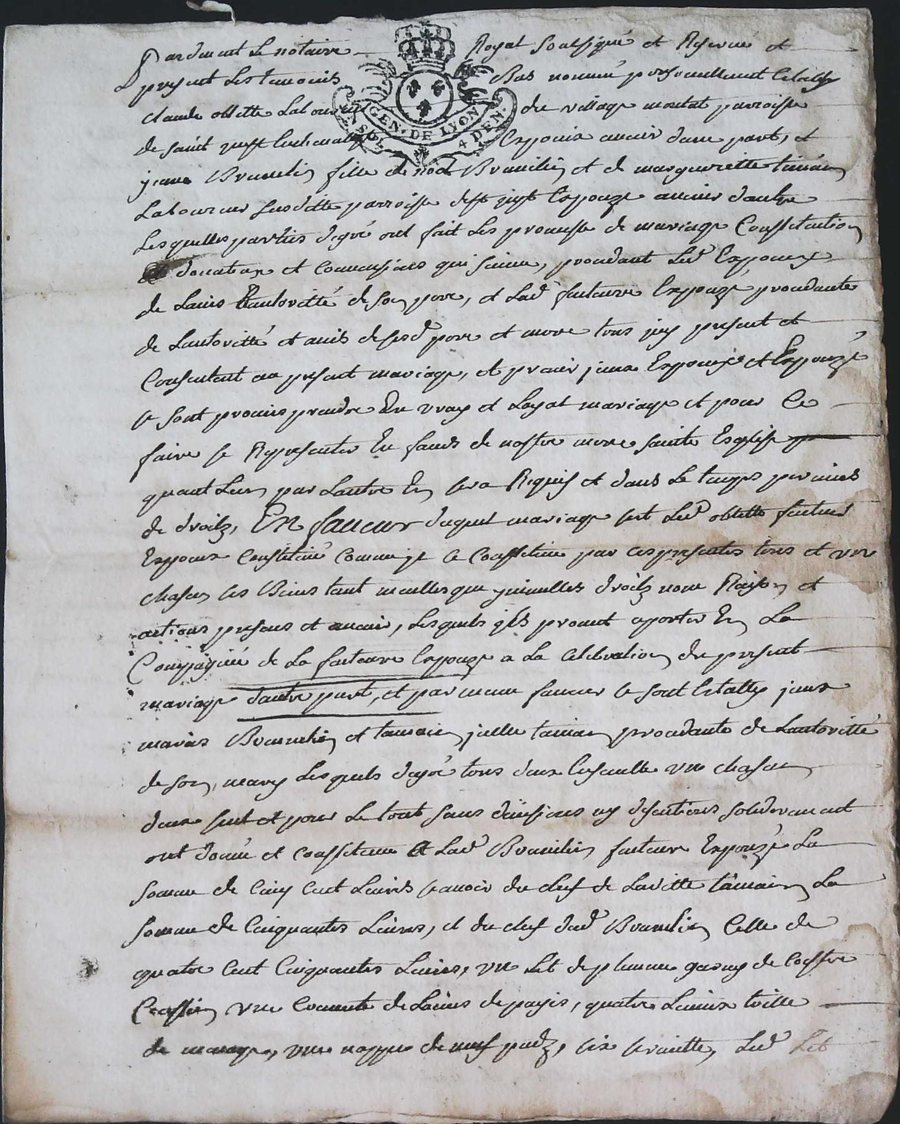 Pardevant le notaire Royal soussigné et Reservé et
present les temoins Bas nommé personnellement estably
claude obtette Laboureur du village montat parroisse
GEN. DE LYON
4 DEN.
de saint Espoux auenir dune part, et
jeane Brunelin fille de noel Brunelin et de margueritte
Laboureur susditte parroisse Espouze auenir dautre
Lesquelles parties degré ont fait les promesse de mariage Constitution
donation et qui suiue, procedant Led Espoux
de Lauis Lautoritté de son pere, et Lad future Espouze procedante
de Lautorité et auis de sesd pere et mere tous icy present et
Consentent au present mariage, et premierement Espoux et Espouze
se sont promis prendre En vray et Loyal mariage et pour Ce
faire se Representer En fasse de nostre mere sainte Esglise
quant Lun par Lautre En sera Requis et dans Le temps
de droitz, En faueur duquel mariage sest Led obtette futeur
Espoux Constitué Comme il se Constitue par ces presentes tous et vn
chasun ses Biens tant meubles que jmeubles droitz nom Raison et
actions presens et auenir, Lesquels jls promet aporter En La
Compagnie de La futeure Espouze a La celebration du present
mariage dautre part, et par meme faueur se sont establys
Brunelin et procedante de Lautoritté
de son mary Lesquels degré tous deux Ensemble vn chasun
deux seul et pour Le tout sans diuision ny discution solidairement
ont donné et Constitué a Lad Brunelin futeure Espouze La
somme de Cinq cent Liures sauoir du chef de Laditte La
somme de Cinquantes Liures, et du chef dud Brunelin Celle de
quatre cent Cinquantes Liures, vn Lit de plume garny de Coitre
Cussin vne Couuerte de Laine de payis, quatre Linceux toille
de menage, vne nappe de neuf piedz, six seruiette, Led Lit